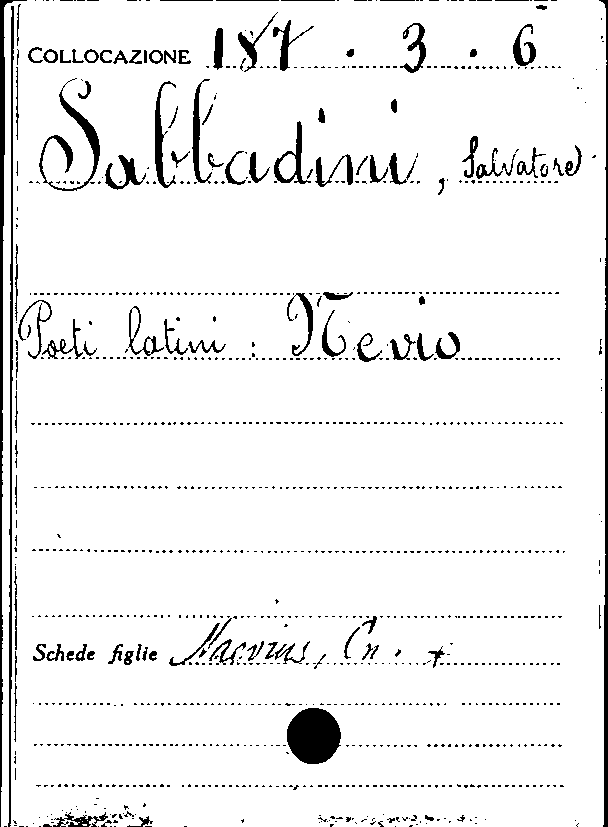 COLLOCAZIONE 187 . 3 . 6
Sabbadini, Salvatore
Poeti latini : Nevio
Schede figlie Naevius, Cn. +